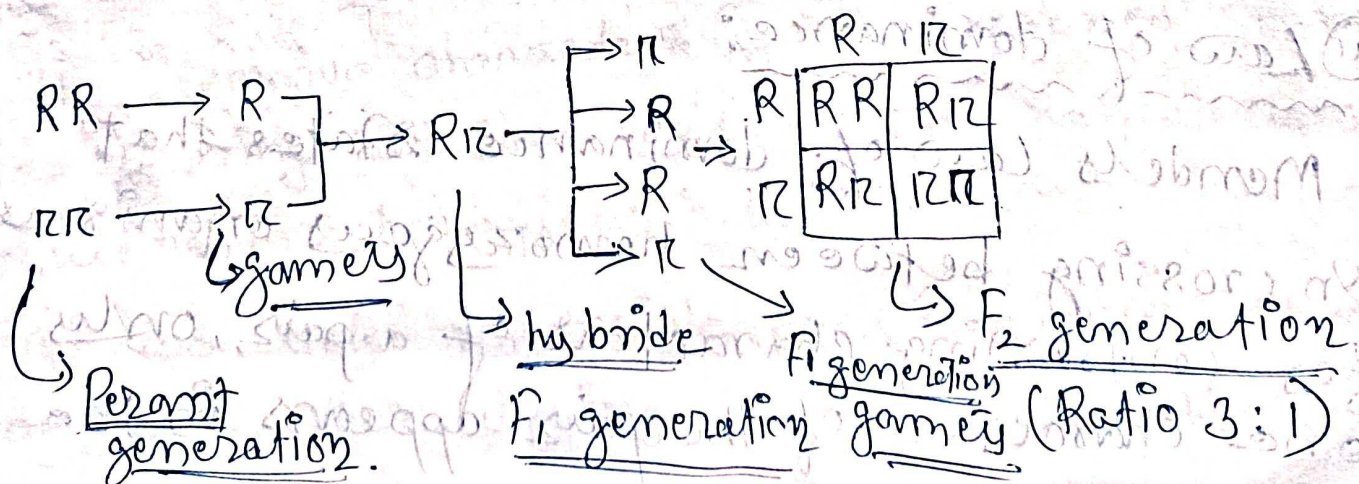 R r
r
RR → R → Rr → R → R RR Rr
R
rr → r r r Rr rr
gamets
hybride
F1 generation
F2 generation
Perant
generation.
F1 generation gamets (Ratio 3:1)